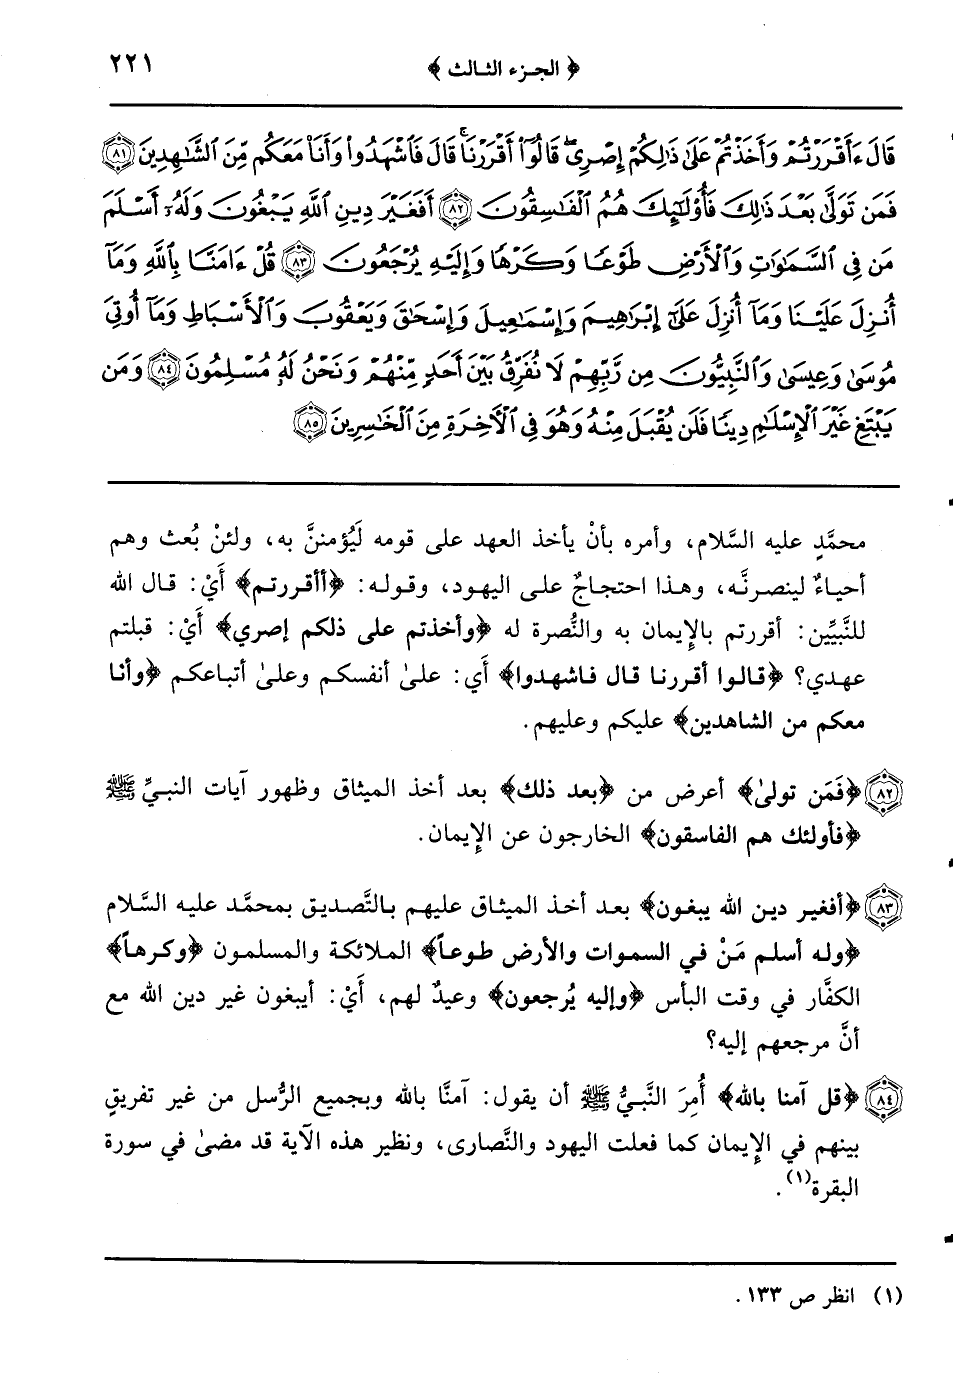 ﴿ الجزء الثالث ﴾ ٢٢١
قَالَ ءَأَقْرَرْتُمْ وَأَخَذْتُمْ عَلَىٰ ذَٰلِكُمْ إِصْرِى ۖ قَالُوٓا۟ أَقْرَرْنَا ۚ قَالَ فَٱشْهَدُوا۟ وَأَنَا۠ مَعَكُم مِّنَ ٱلشَّٰهِدِينَ ٨١
فَمَن تَوَلَّىٰ بَعْدَ ذَٰلِكَ فَأُو۟لَٰٓئِكَ هُمُ ٱلْفَٰسِقُونَ ٨٢ أَفَغَيْرَ دِينِ ٱللَّهِ يَبْغُونَ وَلَهُۥٓ أَسْلَمَ
مَن فِى ٱلسَّمَٰوَٰتِ وَٱلْأَرْضِ طَوْعًا وَكَرْهًا وَإِلَيْهِ يُرْجَعُونَ ٨٣ قُلْ ءَامَنَّا بِٱللَّهِ وَمَآ
أُنزِلَ عَلَيْنَا وَمَآ أُنزِلَ عَلَىٰٓ إِبْرَٰهِيمَ وَإِسْمَٰعِيلَ وَإِسْحَٰقَ وَيَعْقُوبَ وَٱلْأَسْبَاطِ وَمَآ أُوتِىَ
مُوسَىٰ وَعِيسَىٰ وَٱلنَّبِيُّونَ مِن رَّبِّهِمْ لَا نُفَرِّقُ بَيْنَ أَحَدٍ مِّنْهُمْ وَنَحْنُ لَهُۥ مُسْلِمُونَ ٨٤ وَمَن
يَبْتَغِ غَيْرَ ٱلْإِسْلَٰمِ دِينًا فَلَن يُقْبَلَ مِنْهُ وَهُوَ فِى ٱلْءَاخِرَةِ مِنَ ٱلْخَٰسِرِينَ ٨٥
محمَّدٍ عليه السَّلام، وأمره بأنْ يأخذ العهد على قومه لَيُؤمننَّ به، ولئنْ بُعث وهم
أحياءٌ لينصرنَّه، وهذا احتجاجٌ على اليهود، وقوله: ﴿أأقررتم﴾ أَيْ: قال الله
للنَّبيِّين: أقررتم بالإِيمان به والنُّصرة له ﴿وأخذتم على ذلكم إصري﴾ أَيْ: قبلتم
عهدي؟ ﴿قالوا أقررنا قال فاشهدوا﴾ أَي: علىٰ أنفسكم وعلىٰ أتباعكم ﴿وأنا
معكم من الشاهدين﴾ عليكم وعليهم.
٨٢ ﴿فَمَن تولىٰ﴾ أعرض من ﴿بعد ذلك﴾ بعد أخذ الميثاق وظهور آيات النبيِّ ﷺ
﴿فأولئك هم الفاسقون﴾ الخارجون عن الإِيمان.
٨٣ ﴿أفغير دين الله يبغون﴾ بعد أخذ الميثاق عليهم بالتَّصديق بمحمَّد عليه السَّلام
﴿وله أسلم مَنْ في السموات والأرض طوعاً﴾ الملائكة والمسلمون ﴿وكرهاً﴾
الكفَّار في وقت البأس ﴿وإليه يُرجعون﴾ وعيدٌ لهم، أَيْ: أيبغون غير دين الله مع
أنَّ مرجعهم إليه؟
٨٤ ﴿قل آمنا بالله﴾ أُمِرَ النَّبيُّ ﷺ أن يقول: آمنَّا بالله وبجميع الرُّسل من غير تفريقٍ
بينهم في الإِيمان كما فعلت اليهود والنَّصارى، ونظير هذه الآية قد مضىٰ في سورة
البقرة(١).
(١) انظر ص ١٣٣.